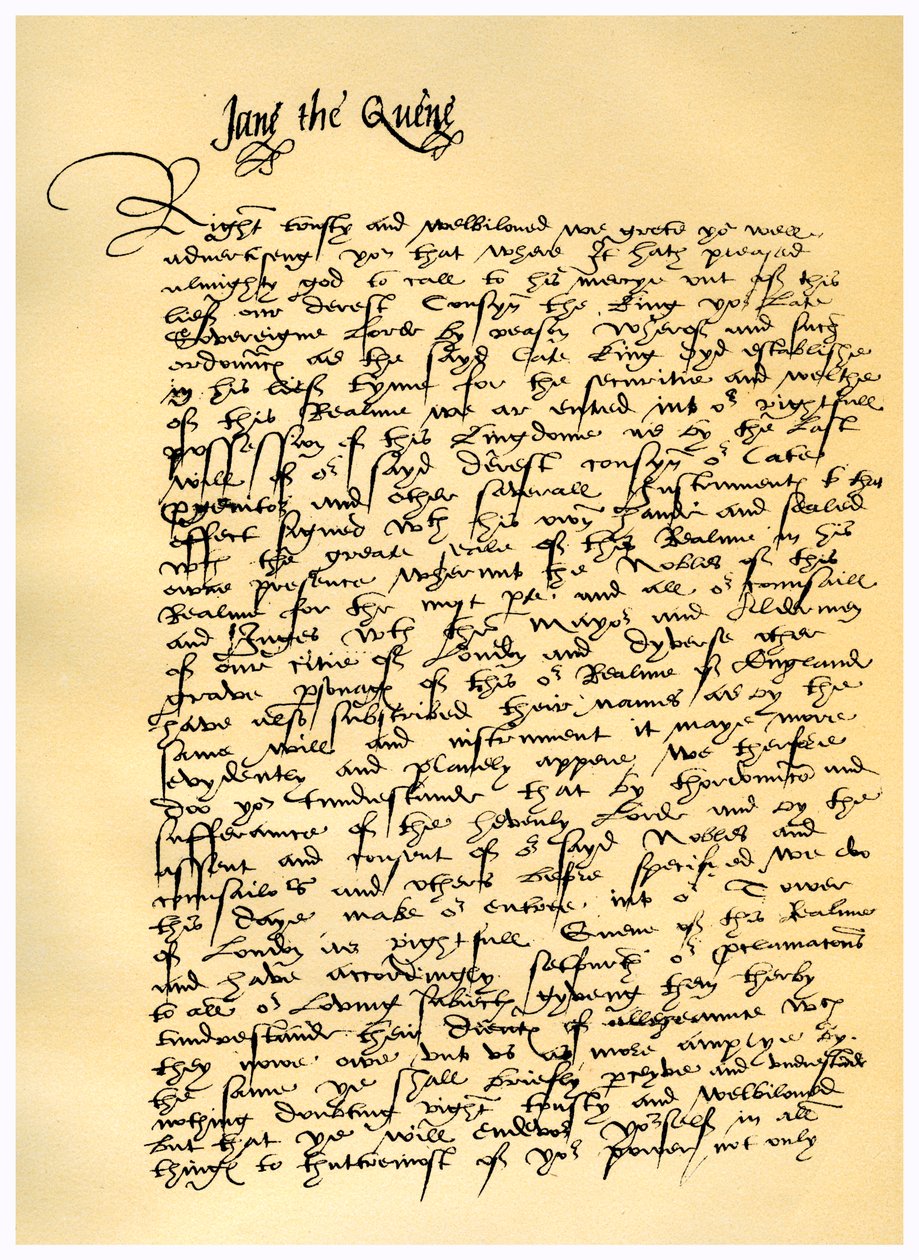 Jane the Quene
Right trusty and welbiloved we grete yoᵘ well
advertiseng yoᵘ that where It hath pleased
almighty god to call to his mercye out of this
lief our derest Cousyn the King yoʳ late
Sovereigne Lorde by reasn wherof and such
ordoñnce as the sayd late King dyd establishe
in his lief tyme for the securitie and welthe
of this Realme we ar entred into oʳ rightfull
possession of this Kingdome as by the last
will of oʳ sayd derest cousyn oʳ late
pgenitoʳ and other severall Instruments to that
effect signed wth his own hande and sealed
wth the greate seale of this Realme in his
owne presence wherunto the Nobles of this
Realme for the most pte and all oʳ counsaill
and Juges wth the Mayoʳ and Aldermen
of our citie of London and dyverse other
grave psonages of this oʳ Realme of England
have also subscribed their names as by the
same will and instrument it maye more
evydently and planely appere We therfore
doo yoᵘ tundrestande that by thordoñnce and
sufferaunce of the hevenly Lorde and by the
assent and consent of oʳ sayd Nobles and
counsailoʳs and others before specifyed We do
this daye make oʳ entree into oʳ Tower
of London as rightfull Quene of this Realme
and have accordingly setfurth oʳ pclamacons
to all oʳ loving subiects gyveng them therby
tundrestande their dueties of allegeaunce wch
they nowe owe unto us as more amplye by
the same ye shall briefly pceyve and understande
nothing doubting right trusty and welbiloved
but that ye will endevoʳ yoʳself in all
things to thuttermost of yoʳ power not only